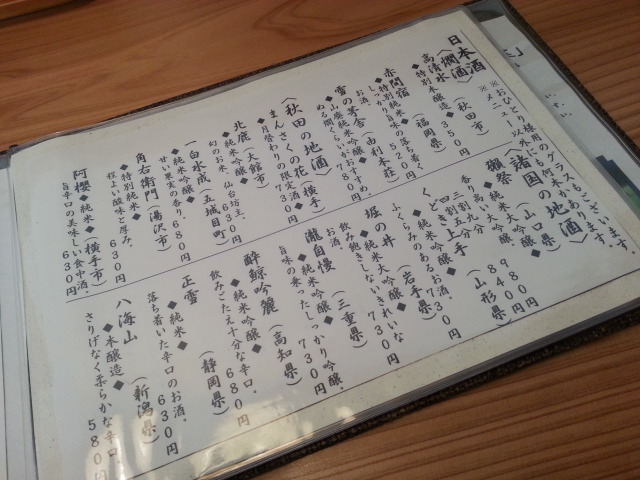 日本酒
※おひとり様用のグラスもございます。
※メニュー以外にも何本かあります。
〈燗酒〉
高清水（秋田市）
◆特別本醸造◆３５０円
赤間宿（福岡県）
◆特別純米◆５２０円
しっかり旨味の落ち着くお酒。
雪の茅舎（由利本荘）
◆山廃純米◆
ぬる燗くらいがおすすめ。
〈秋田の地酒〉
まんさくの花（横手）
◆月替わりの限定酒◆７３０円
北鹿（大館市）
◆純米吟醸◆仙台坊主。
幻のお米。７３０円
一白水成（五城目町）
◆純米吟醸◆
甘い果実の香り。６８０円
角右衛門（湯沢市）
◆特別純米◆
程よい酸味と厚み。６３０円
阿櫻（横手市）
◆純米◆
旨辛口の美味しい食中酒。６３０円
〈諸国の地酒〉
獺祭（山口県）
◆純米大吟醸◆
香り高いお酒
三割九分
くどき上手（山形県）
◆純米吟醸◆
ふくらみのあるお酒。７３０円
堀の井（岩手県）
◆純米大吟醸◆
飲み飽きしないきれいなお酒。７３０円
瀧自慢（三重県）
◆純米吟醸◆
旨味の乗ったしっかり吟醸。７３０円
酔鯨吟麗（高知県）
◆純米吟醸◆
飲みごたえ十分な辛口。６８０円
正雪（静岡県）
◆純米◆
落ち着いた辛口のお酒。６３０円
八海山（新潟県）
◆本醸造◆
さりげなく柔らかな辛口。５８０円